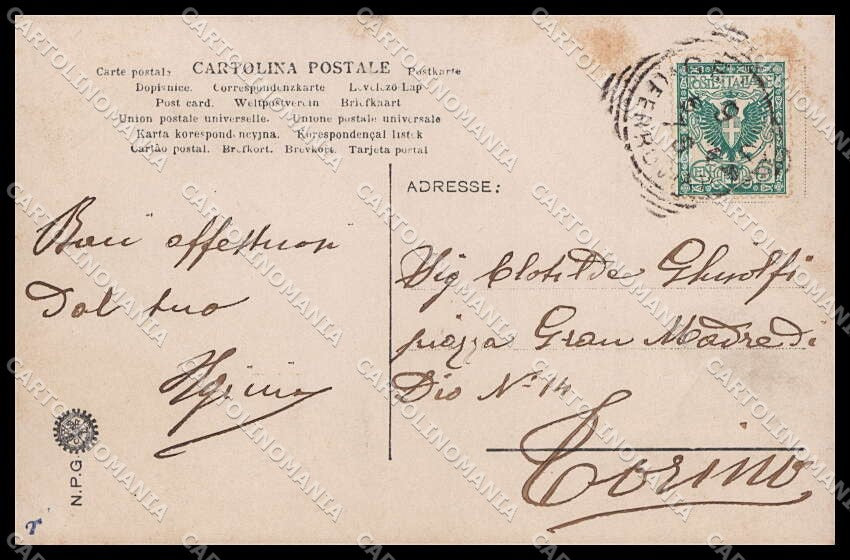 Carte postale CARTOLINA POSTALE Postkarte
Dopisnice. Correspondenzkarte Levelező-Lap
Post card. Weltpostverein Briefkaart
Union postale universelle. Unione postale universale
Karta korespondencyjna. Korespondençal listek
Cartão postal. Brefkort. Brevkort. Tarjeta postal
ADRESSE:
Baci affettuosi
Dal tuo
Sig Clotilde Ghisolfi
piazza Gran Madre di
Dio N° 14
Torino
N.P.G.
POSTE ITALIANE
CARTOLINOMANIA